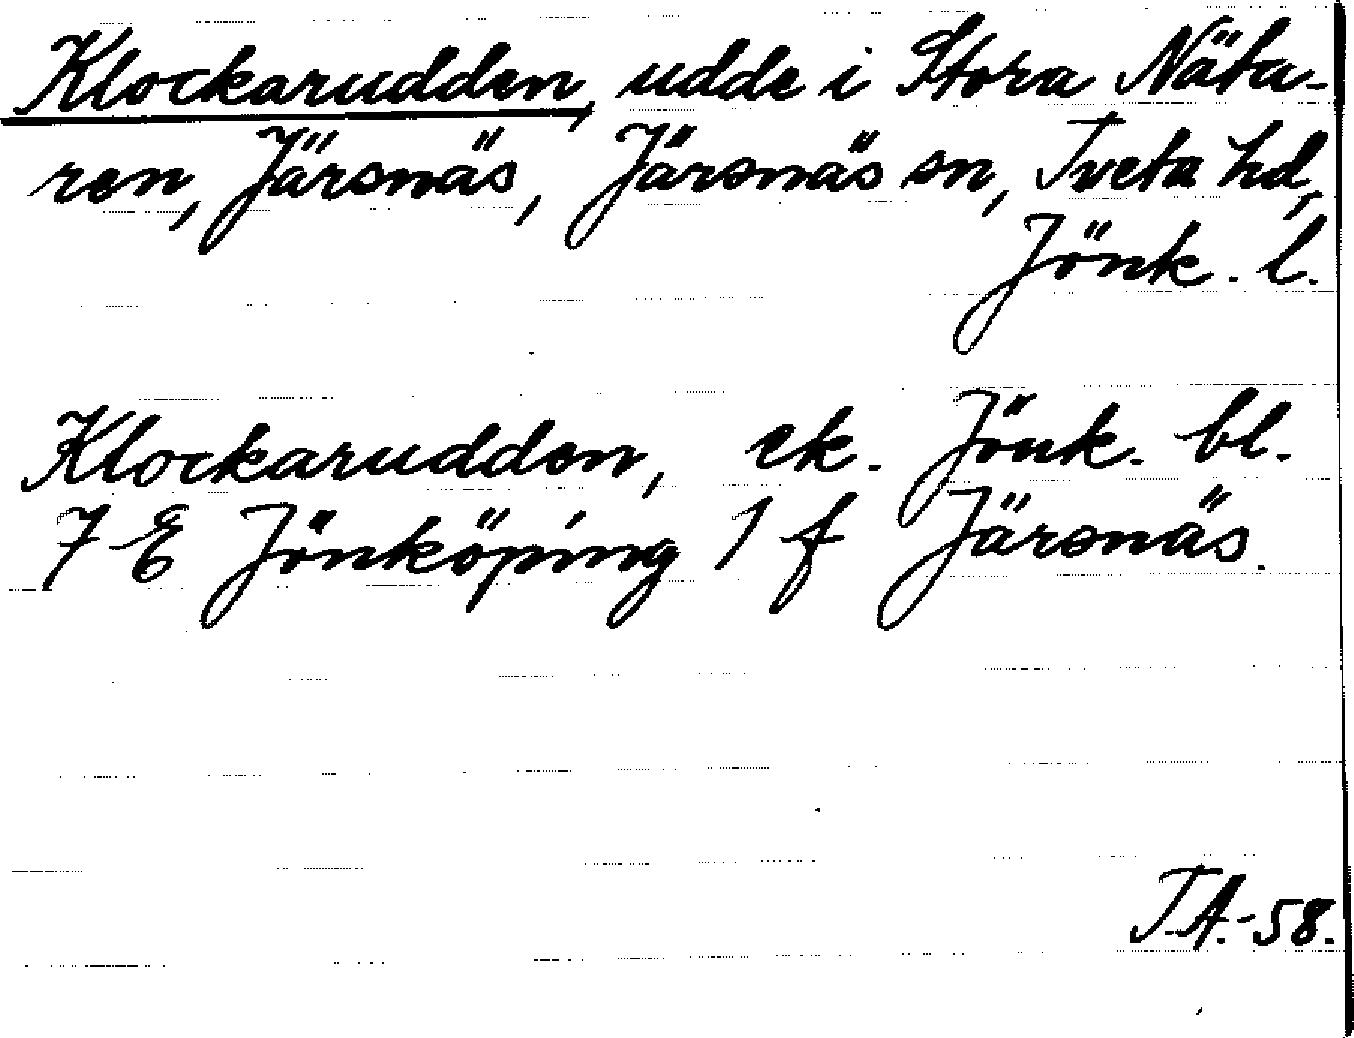 Klockarudden, udde i Stora Näta-
ren, Järsnäs, Järsnäs sn, Tveta hd,
Jönk. l.
Klockarudden, ek. Jönk. bl.
7 E Jönköping 1 f Järsnäs.
T.A.-58.